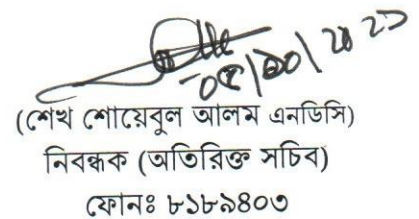 (শেখ শোয়েবুল আলম এনডিসি)
নিবন্ধক (অতিরিক্ত সচিব)
ফোনঃ ৮১৮৯৪০৩